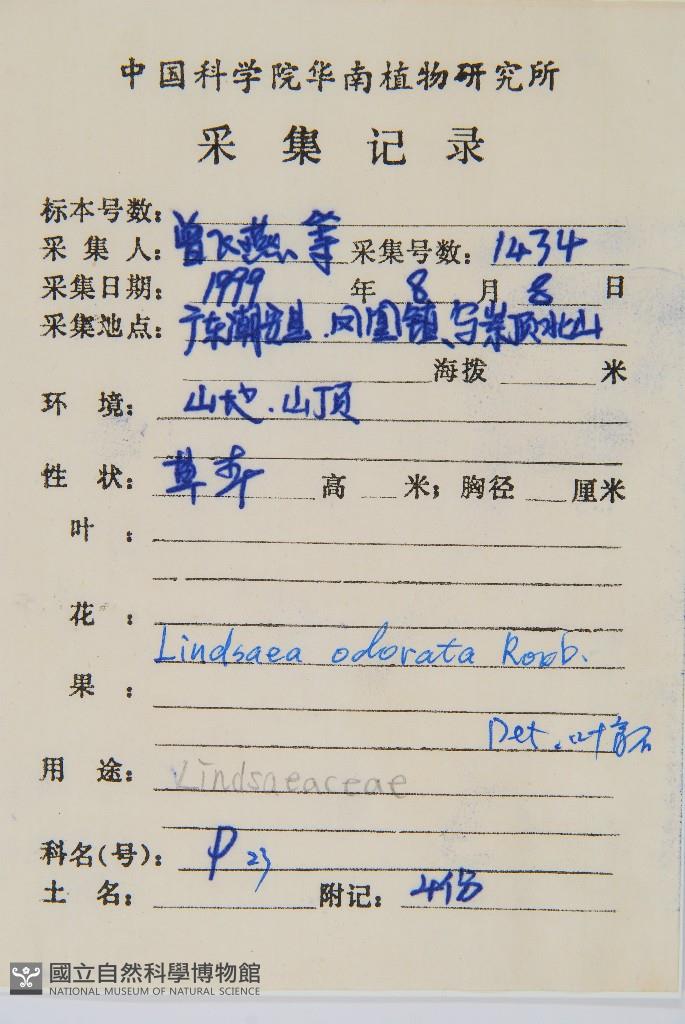 中国科学院华南植物研究所
采集记录
标本号数：
采集人：曾飞燕、等 采集号数：1434
采集日期：1999 年 8 月 8 日
采集地点：广东潮安县、凤凰镇、乌岽顶北山
海拨 米
环境：山地、山顶
性状：草本 高 米；胸径 厘米
叶：
花：
Lindsaea odorata Roxb.
果：
Det. 叶育石
用途：Lindsaeaceae
科名(号)：P 23
土名： 附记：4份
國立自然科學博物館
NATIONAL MUSEUM OF NATURAL SCIENCE